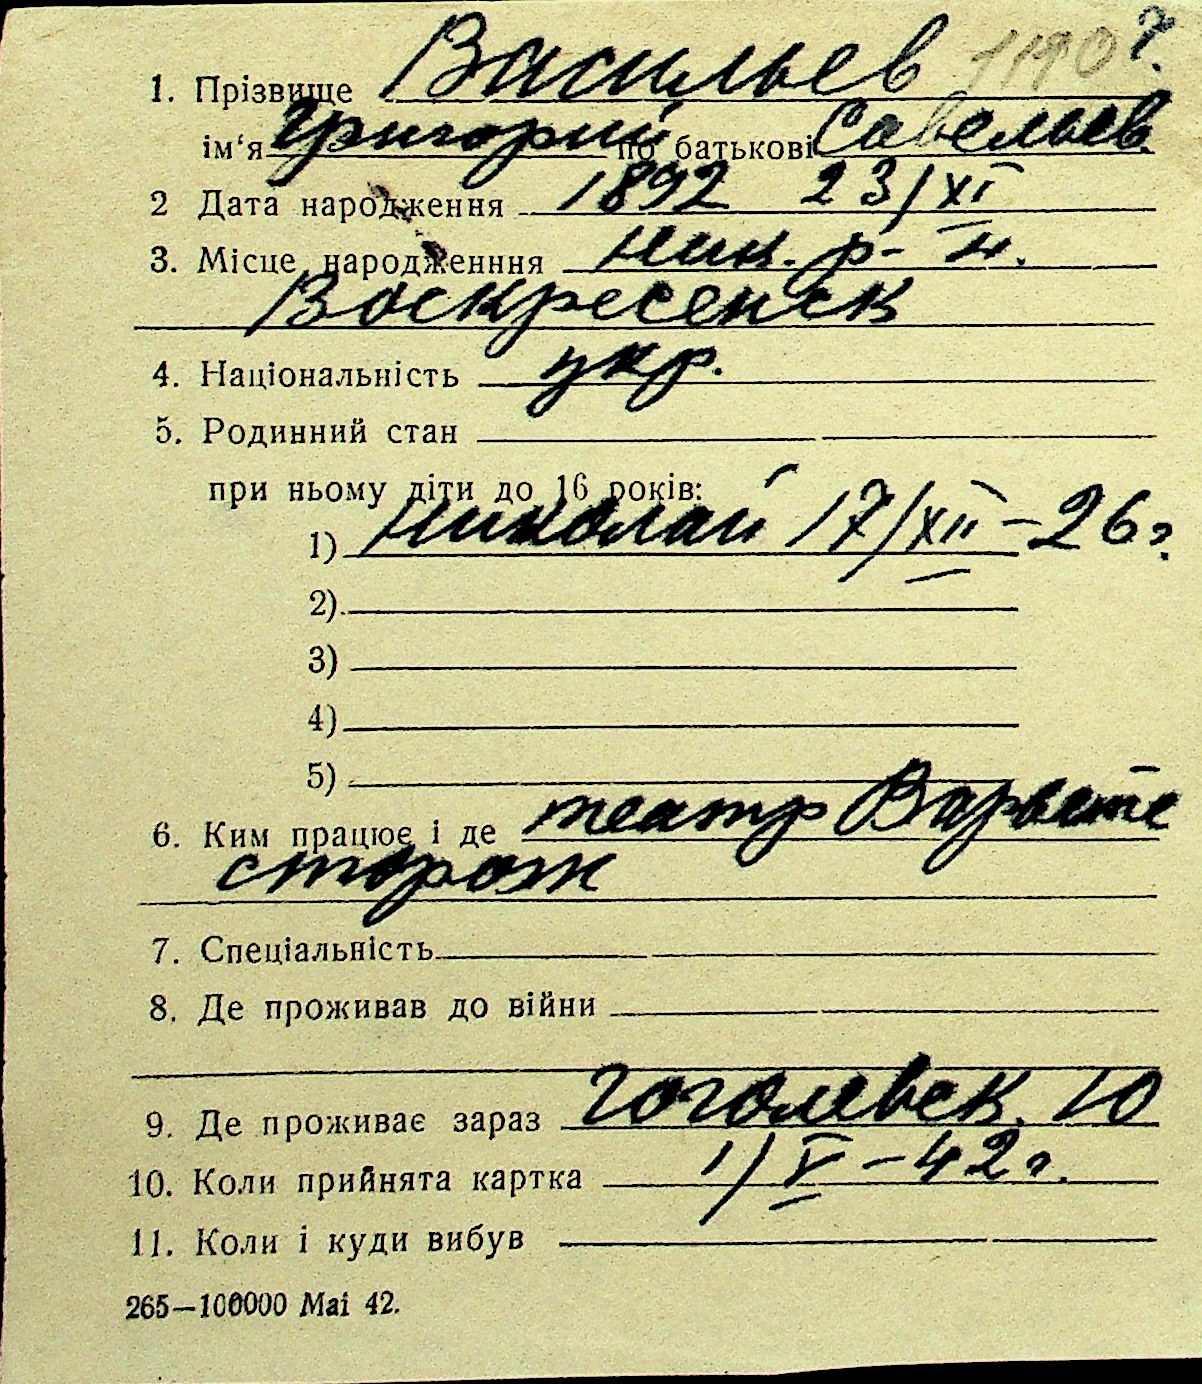 1. Прізвище Васильев 1190 г.
ім‘я Григорий по батькові Савельев.
2 Дата народження 1892 23/XI
3. Місце народженння Ник. р-н.
Воскресенск
4. Національність укр.
5. Родинний стан
при ньому діти до 16 років:
1) Николай 17/XII-26 г.
2)
3)
4)
5)
6. Ким працює і де театр Варьете
сторож
7. Спеціальність
8. Де проживав до війни
9. Де проживає зараз Гоголевск. 10
10. Коли прийнята картка 1/V-42 г.
11. Коли і куди вибув
265—100000 Mai 42.